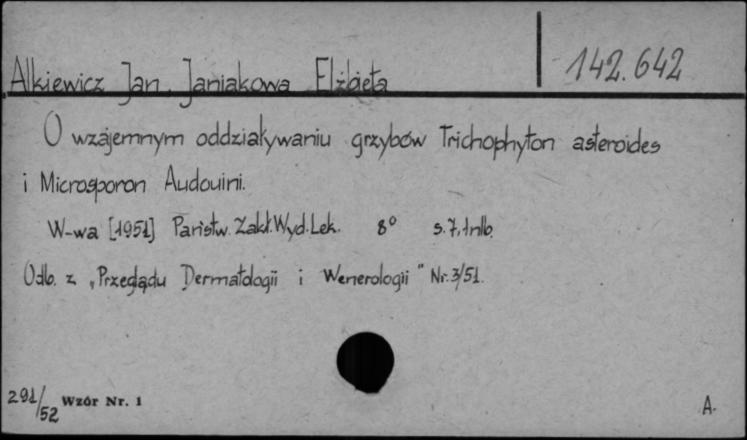 142.642
Alkiewicz Jan, Janiakowa Elżbieta
O wzajemnym oddziaływaniu grzybów Trichophyton asteroides
i Microsporon Audouini.
W-wa [1951] Państw. Zakł. Wyd. Lek. 8° s. 7, 1 nlb.
Odb. z „Przeglądu Dermatologii i Wenerologii" Nr. 3/51.
291/52 Wzór Nr. 1
A.